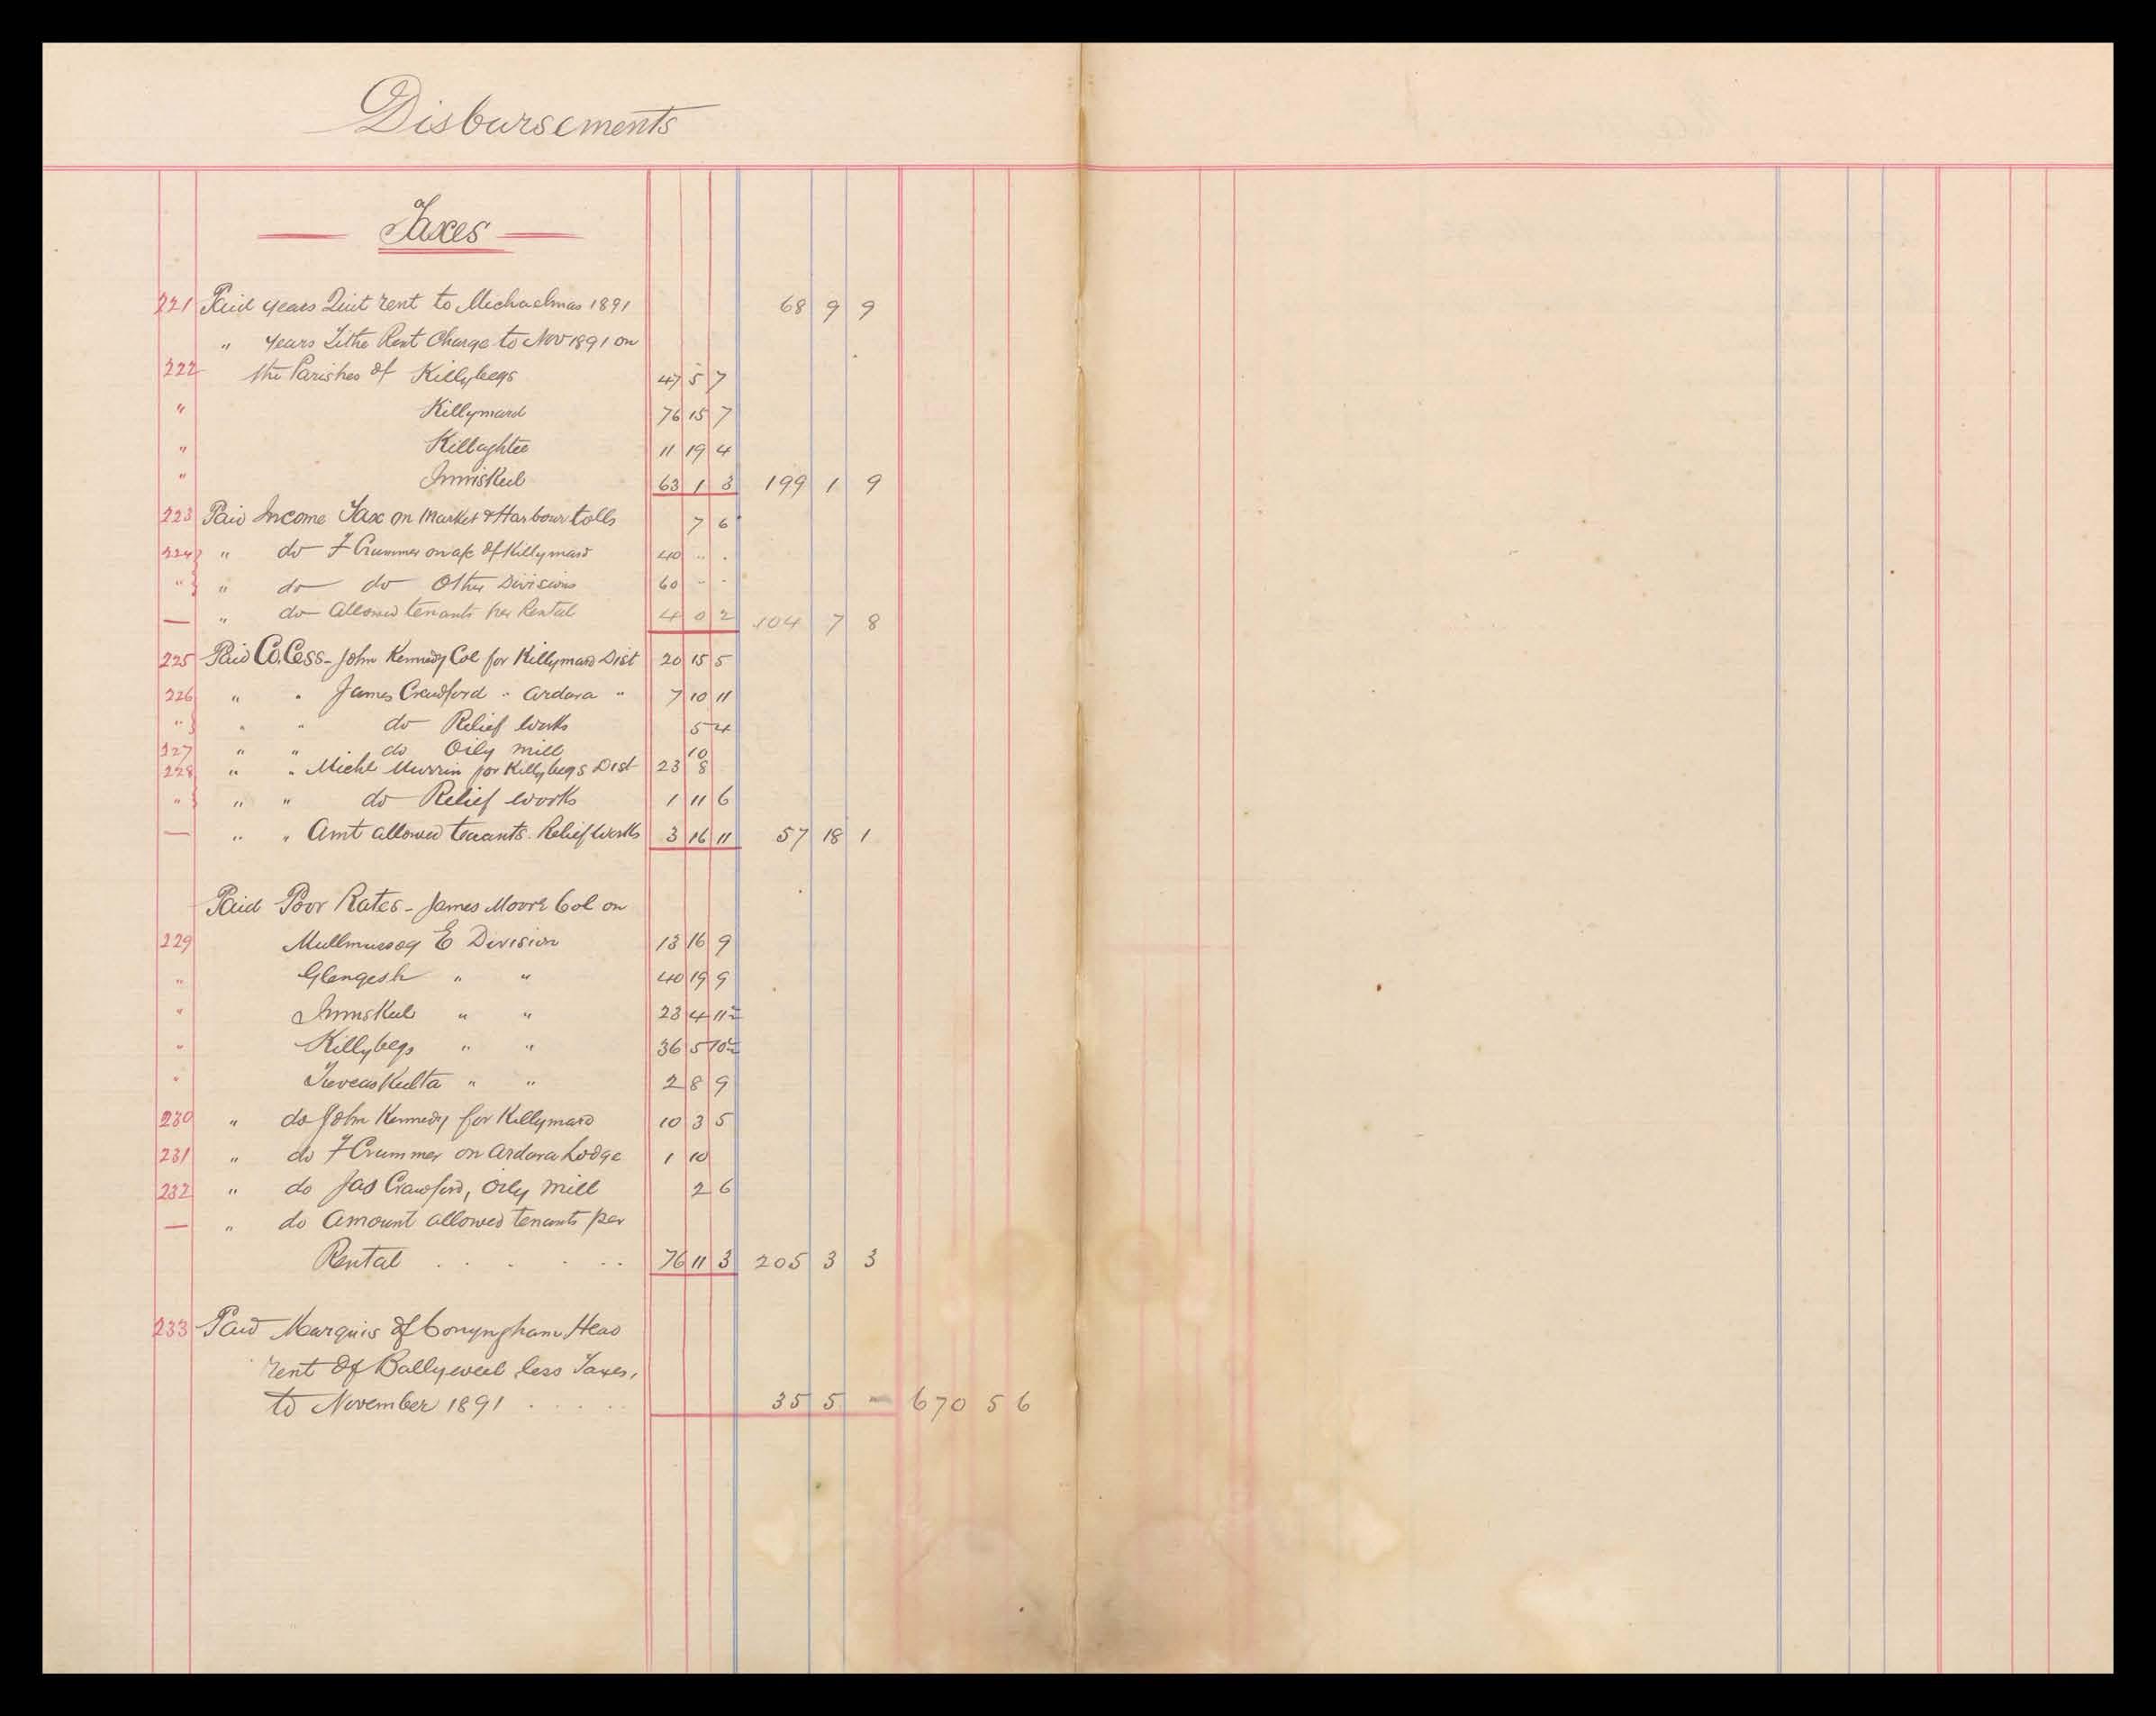 Disbursements
Taxes
221 Paid years Quit rent to Michaelmas 1891 68 9 9
" years Tithe Rent Charge to Nov 1891 on
222 the Parishes of Killybegs 47 5 7
" Killymard 76 15 7
" Killaghtee 11 19 4
" Inniskeel 63 1 3 199 1 9
223 Paid Income Tax on Market & Harbour tolls 7 6
224 " do F Crummer on a/c of Killymard 40 .. .
" " do do Other Divisions 60 - -
— " do Allowed tenants per Rental 4 0 2 104 7 8
225 Paid Co. Cess - John Kennedy Col for Killymard Dist 20 15 5
226 " " James Crawford " Ardara " 7 10 11
" " " do Relief Works 5 4
227 " " do Oily Mill 10
228 " " Michl Murrin for Killybegs Dist 23 8
" " " do Relief Works 1 11 6
— " " Amt allowed tenants Relief Works 3 16 11 57 18 1
Paid Poor Rates - James Moore Col on
229 Mullmussog E Division 13 16 9
" Glengesh " " 40 19 9
" Inniskeel " " 23 4 11½
" Killybegs " " 36 5 10½
" Tieveaskeelta " " 2 8 9
230 " do John Kennedy for Killymard 10 3 5
231 " do F Crummer on Ardara Lodge 1 10
232 " do Jas Crawford, Oily Mill 2 6
— " do Amount allowed tenants per
Rental . . . . . . 76 11 3 205 3 3
233 Paid Marquis of Conyngham Head
rent of Ballyweel less Taxes,
to November 1891 . . . . . 35 5 - 670 5 6